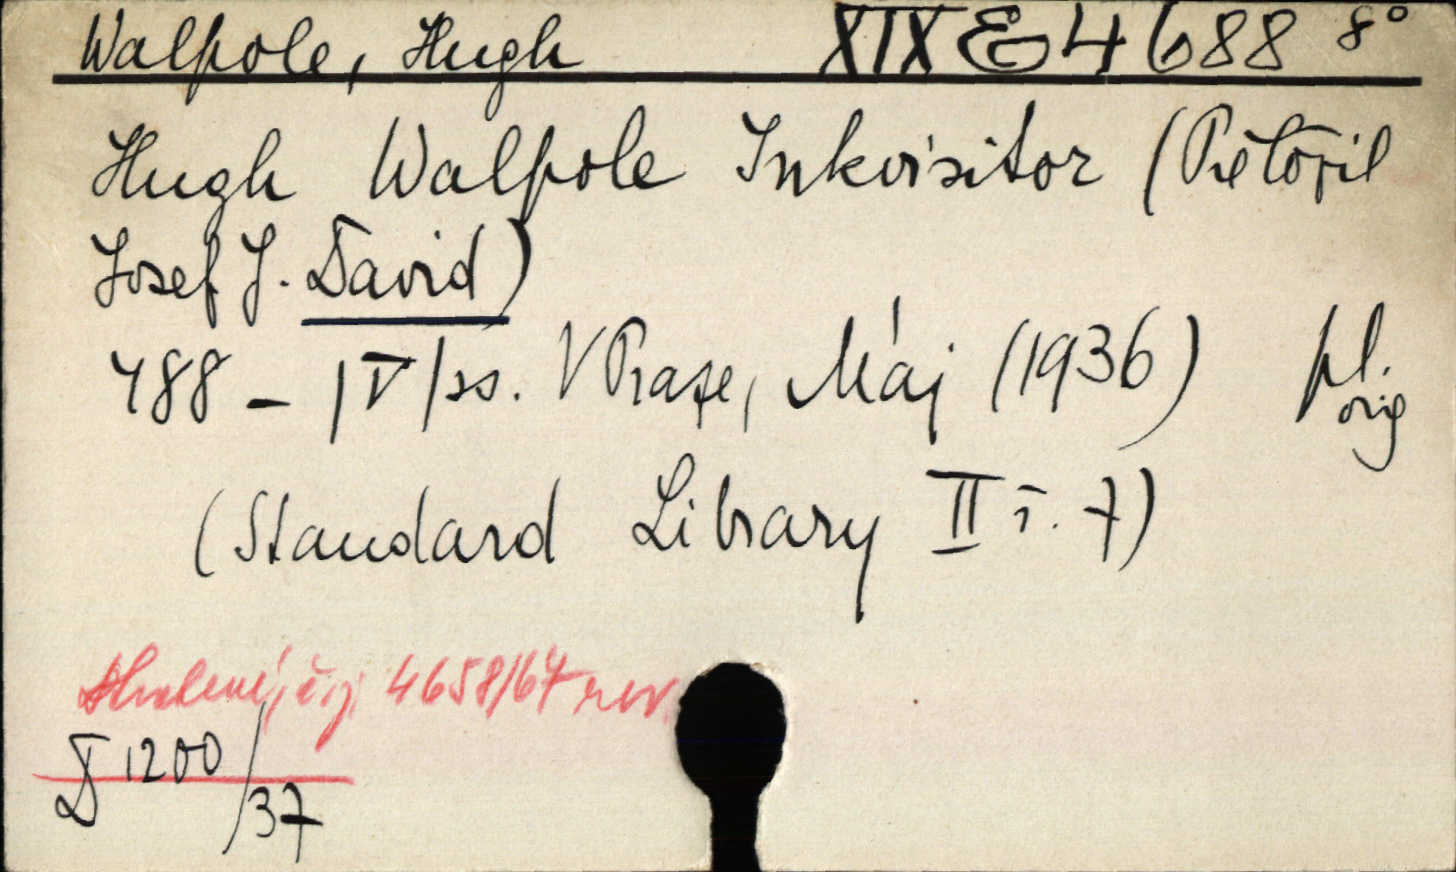 Walpole, Hugh XIX E 4688 8°
Hugh Walpole Inkvisitor (Přeložil
Josef J. David)
488 - |V| ss. V Praze, Máj (1936) pl.
orig
(Standard Library II ř. 7)
čj. 4658/67 rev.
D 1200/37